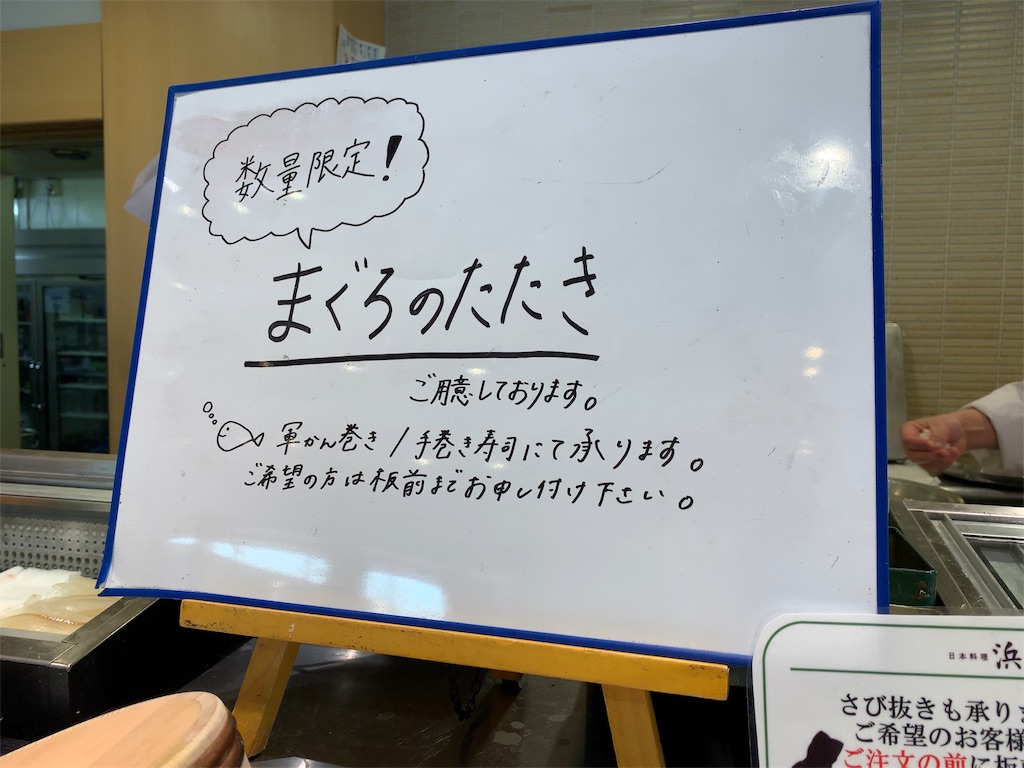 数量限定!
まぐろのたたき
ご用意しております。
軍かん巻き/手巻き寿司にて承ります。
ご希望の方は板前までお申し付け下さい。
日本料理 浜
さび抜きも承りま
ご希望のお客様
ご注文の前に板